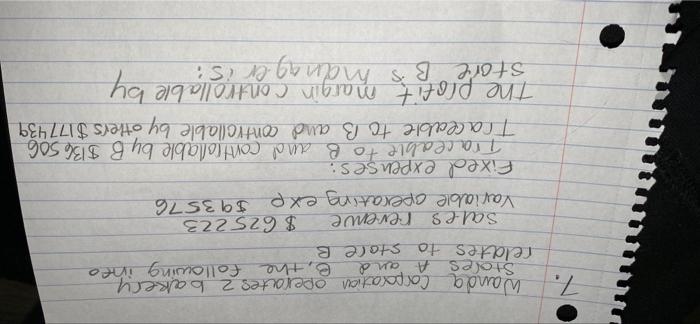 7. Wanda Corporation operates 2 bakery
stores A and B, the following info
relates to store B
Sales revenue $625223
Variable operating exp $93576
Fixed expenses:
Traceable to B and controllable by B $136506
Traceable to B and controllable by others $177439
The profit margin controllable by
store B's manager is: